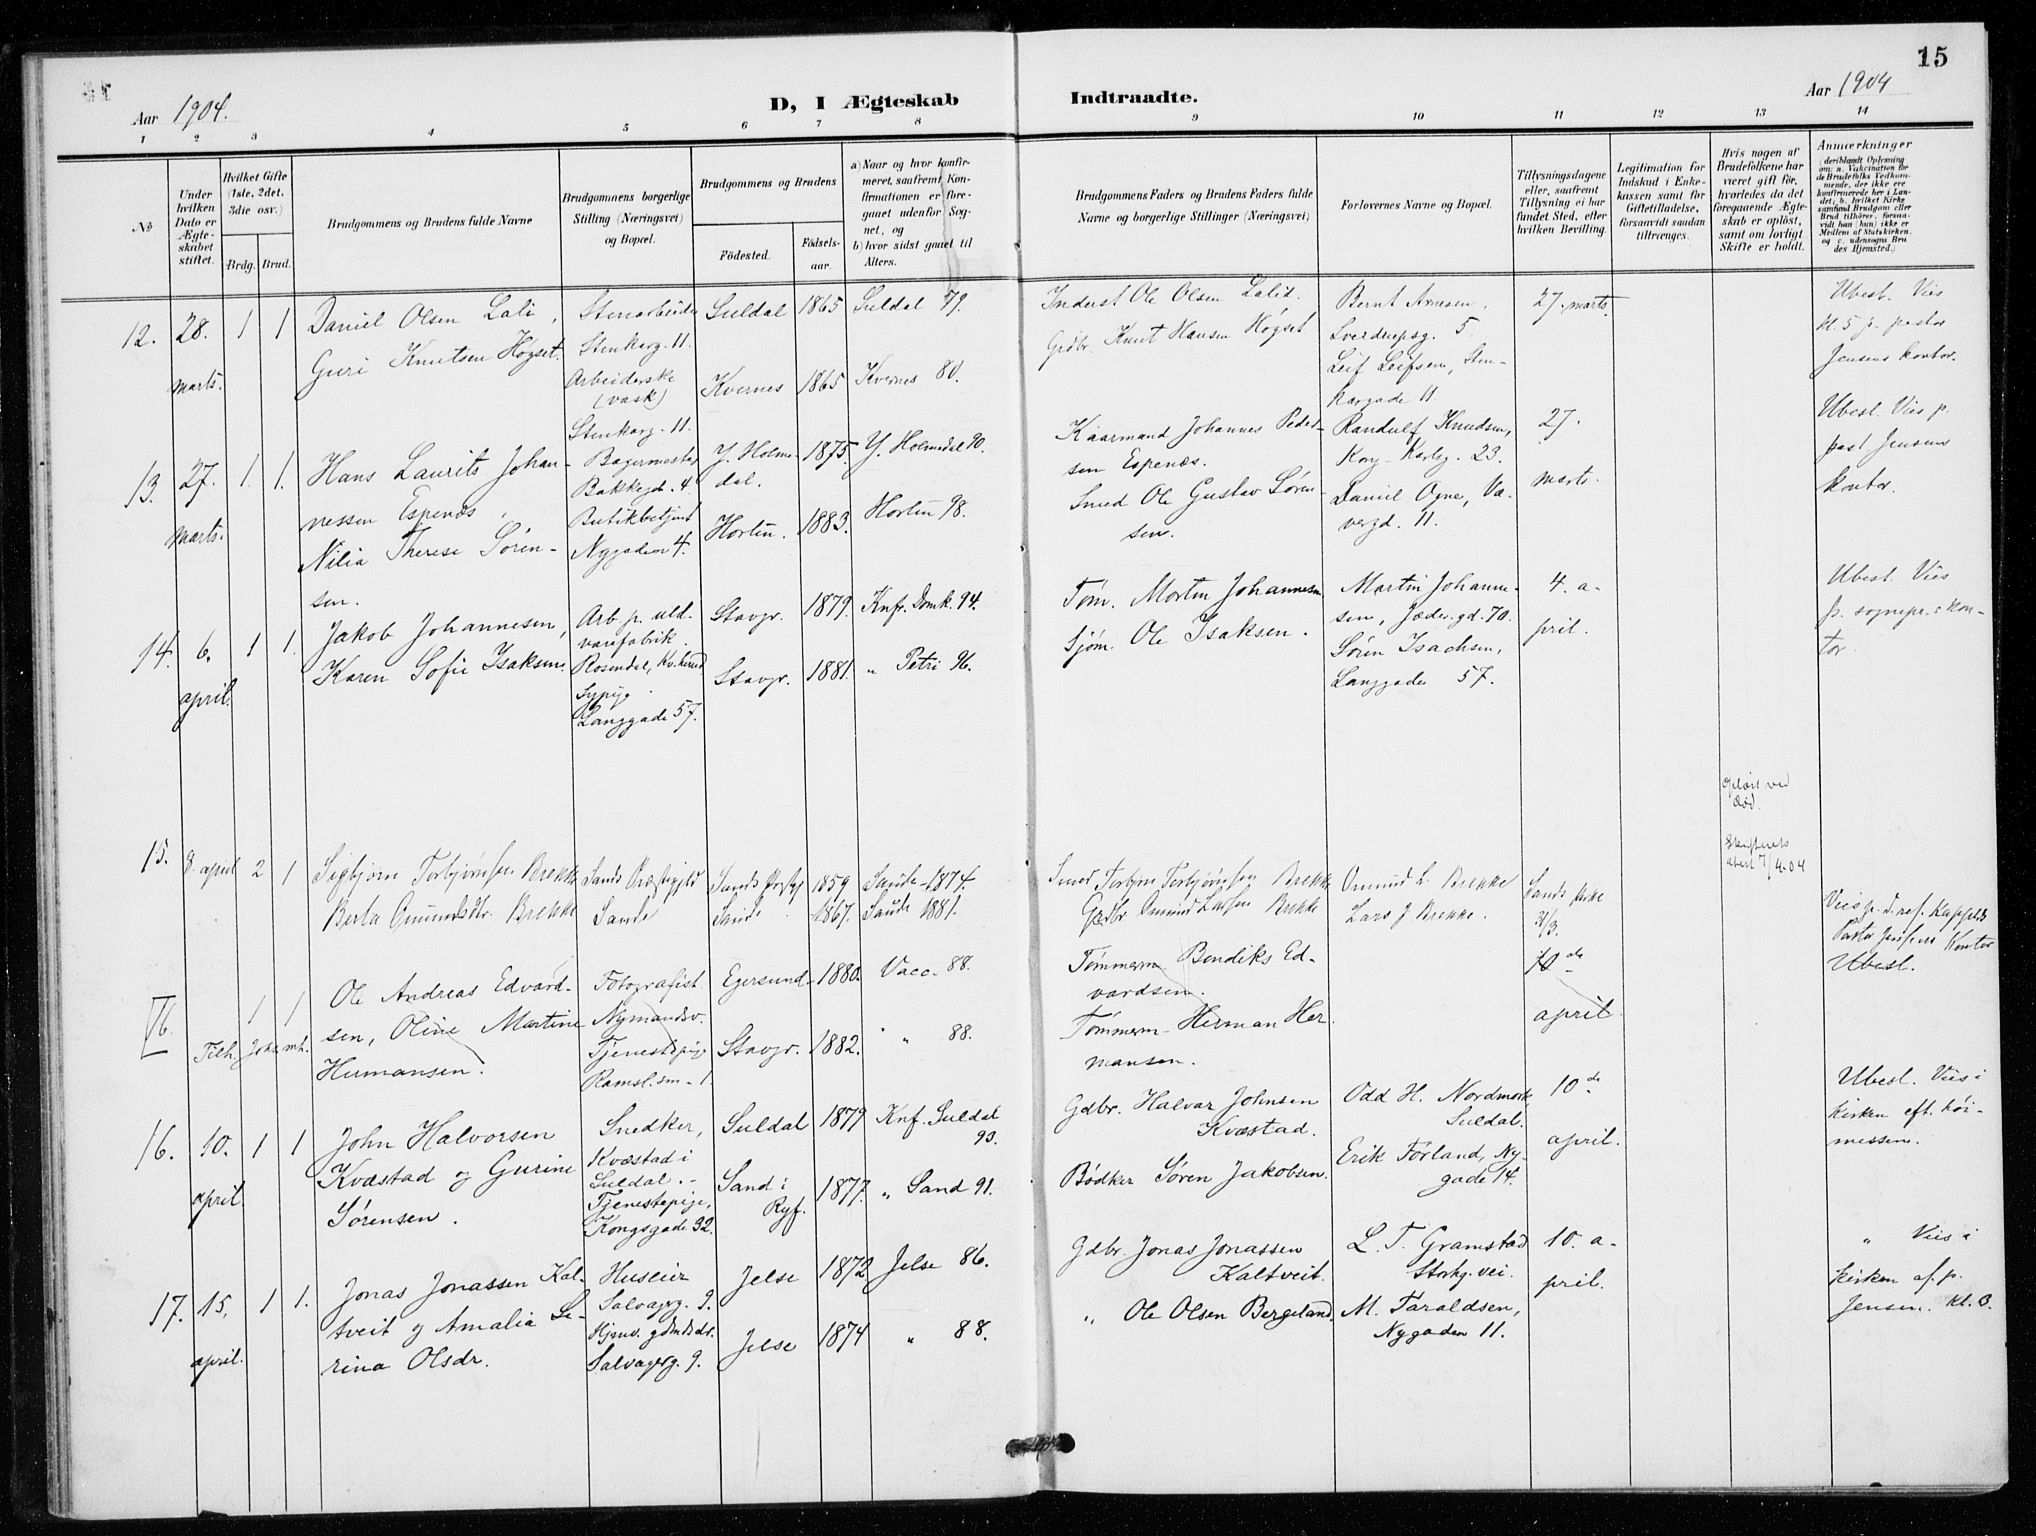 15
Aar 1904.
D, I Ægteskab Indtraadte.
Aar 1904
1 2 3 4 5 6 7 8 9 10 11 12 13 14
No
Under hvilken Dato er Ægteskabet stiftet.
Hvilket Gifte (1ste, 2det, 3die osv.)
Brdg. Brud.
Brudgommens og Brudens fulde Navne
Brudgommens borgerlige Stilling (Næringsvei) og Bopæl.
Brudgommens og Brudens
Födested.
Födselsaar.
a) Naar og hvor konfirmeret, saafremt Konfirmationen er foregaaet udenfor Sognet, og
b) hvor sidst gaaet til Alters.
Brudgommens Faders og Brudens Faders fulde Navne og borgerlige Stillinger (Næringsvei)
Forlovernes Navne og Bopæl.
Tillysningsdagene eller, saafremt Tillysning ei har fundet Sted, efter hvilken Bevilling.
Legitimation for Indskud i Enkekassen samt for Giftetilladelse, forsaavidt saadan tiltrænges.
Hvis nogen af Brudefolkene har været gift før, hvorledes da det foregaaende Ægteskab er oplöst, samt om lovligt Skifte er holdt.
Anmærkninger
(deriblandt Oplysning om: a. Vakcination for de Brudefolks Vedkommende, der ikke ere konfirmerede her i Landet; b. hvilket Kirkesamfund Brudgom eller Brud tilhörer, forsaavidt han (hun) ikke er Medlem af Statskirken, og c. udensogns Brudes Hjemsted.)
12. 28. marts. 1 1
Daniel Olsen Lali,
Guri Knutsen Høgset.
Stenarbeider
Stenkarg. 11.
Arbeiderske
(vask)
Stenkarg. 11.
Suldal 1865 Suldal 79.
Kvernes 1865 Kvernes 80.
Inderst Ole Olsen Lalid.
Grdbr. Knut Hansen Høgset
Bernt Arnesen.
Sverdrupsg. 5.
Leif Leifsen, Sten-
kargade 11.
27. marts.
Ubesl. Vies
kl. 5 p. pastor
Jensens kontor.
13. 27. marts. 1. 1.
Hans Laurits Johan-
nessen Espenæs,
Nilia Therese Søren-
sen.
Bagermester
Bakkegd. 4.
Butikbetjent
Nygaden 4.
Y. Holme-
dal. 1875. Y. Holmedal 90.
Horten. 1883. Horten 98.
Kaarmand Johannes Peder-
sen Espenæs.
Smed Ole Gustav Søren-
sen.
Randulf Knudsen,
Kong Karlsg. 23.
Daniel Ogne, Væ-
vergd. 11.
27. marts.
Ubesl. Vies p.
past Jensens
kontor.
14. 6. april. 1 1.
Jakob Johannesen,
Karen Sofie Isaksen.
Arb. p. uld-
varefabrik.
Rosendal,
Sypige.
Langgade 57.
Stavgr. 1879. Knfr. Domk. 94.
Stavgr. 1881. „ Petri 96.
Tøm. Morten Johannesen
Sjøm. Ole Isaksen.
Martin Johanne-
sen, Jæder.gd. 70.
Søren Isachsen,
Langgade 57.
4. a-
pril.
Ubesl. Vies
p. sognepr.s kon-
tor.
15. 8. april 2 1
Sigbjørn Torbjørnsen Brekke
Berta Omundsdtr. Brekke
Sands Præstegjeld
Sande
Sands Prstgj 1859 Saude 1874.
Saude 1867. Saude 1881.
Smed Torbjørn Torbjørnsen Brekke
Grdbr Omund Larsen Brekke
Omund L. Brekke
Lars J Brekke.
Sands Kirke
31/3.
Opløst ved
død.
Skifterets
attest 7/4-04
Vies p. d. ref. Kappels
Pastor Jensens Kontor
Ubesl.
16. Tilh. Joh. mh. 1 1
Ole Andreas Edvard-
sen, Oline Martine
Hermansen.
Fotografist.
Nymandsv.
Tjenestepige
Ramsl. sm. 1.
Egersund 1880. Vacc. 88.
Stavgr. 1882. „ 88.
Tømmerm. Bendiks Ed-
vardsen.
Tømmerm. Herman Her-
mansen.
10de
april.
16. 10. april 1 1
John Halvorsen
Kvæstad og Gurine
Sørensen.
Snedker,
Kvæstad i
Suldal. -
Tjenestepige,
Kongsgade 92.
Suldal 1879 Knf. Suldal
93.
Sand i
Ryf. 1877. „ Sand 91.
Gdbr. Halvar Johnsen
Kvæstad.
Bødker Søren Jakobsen.
Odd H. Nordmork
Suldal.
Erik Førland, Ny-
gade 14.
10de
april.
Ubesl. Vies i
kirken eft. høi-
messen.
17. 15. april. 1 1.
Jonas Jonassen Kal-
tveit og Amalia Se-
rina Olsdr.
Huseier
Salvagerg. 9.
Hjemv. gdmdsdr.
Salvagerg. 9.
Jelse 1872 Jelse 86.
Jelse 1874 „ 88.
Gdbr. Jonas Jonassen
Kaltveit.
„ Ole Olsen Bergeland.
L. T. Gramstad
Storhg. vei.
M. Taraldsen,
Nygaden 11.
10. a-
pril.
„ Vies i
kirken af p.
Jensen. kl. 8.